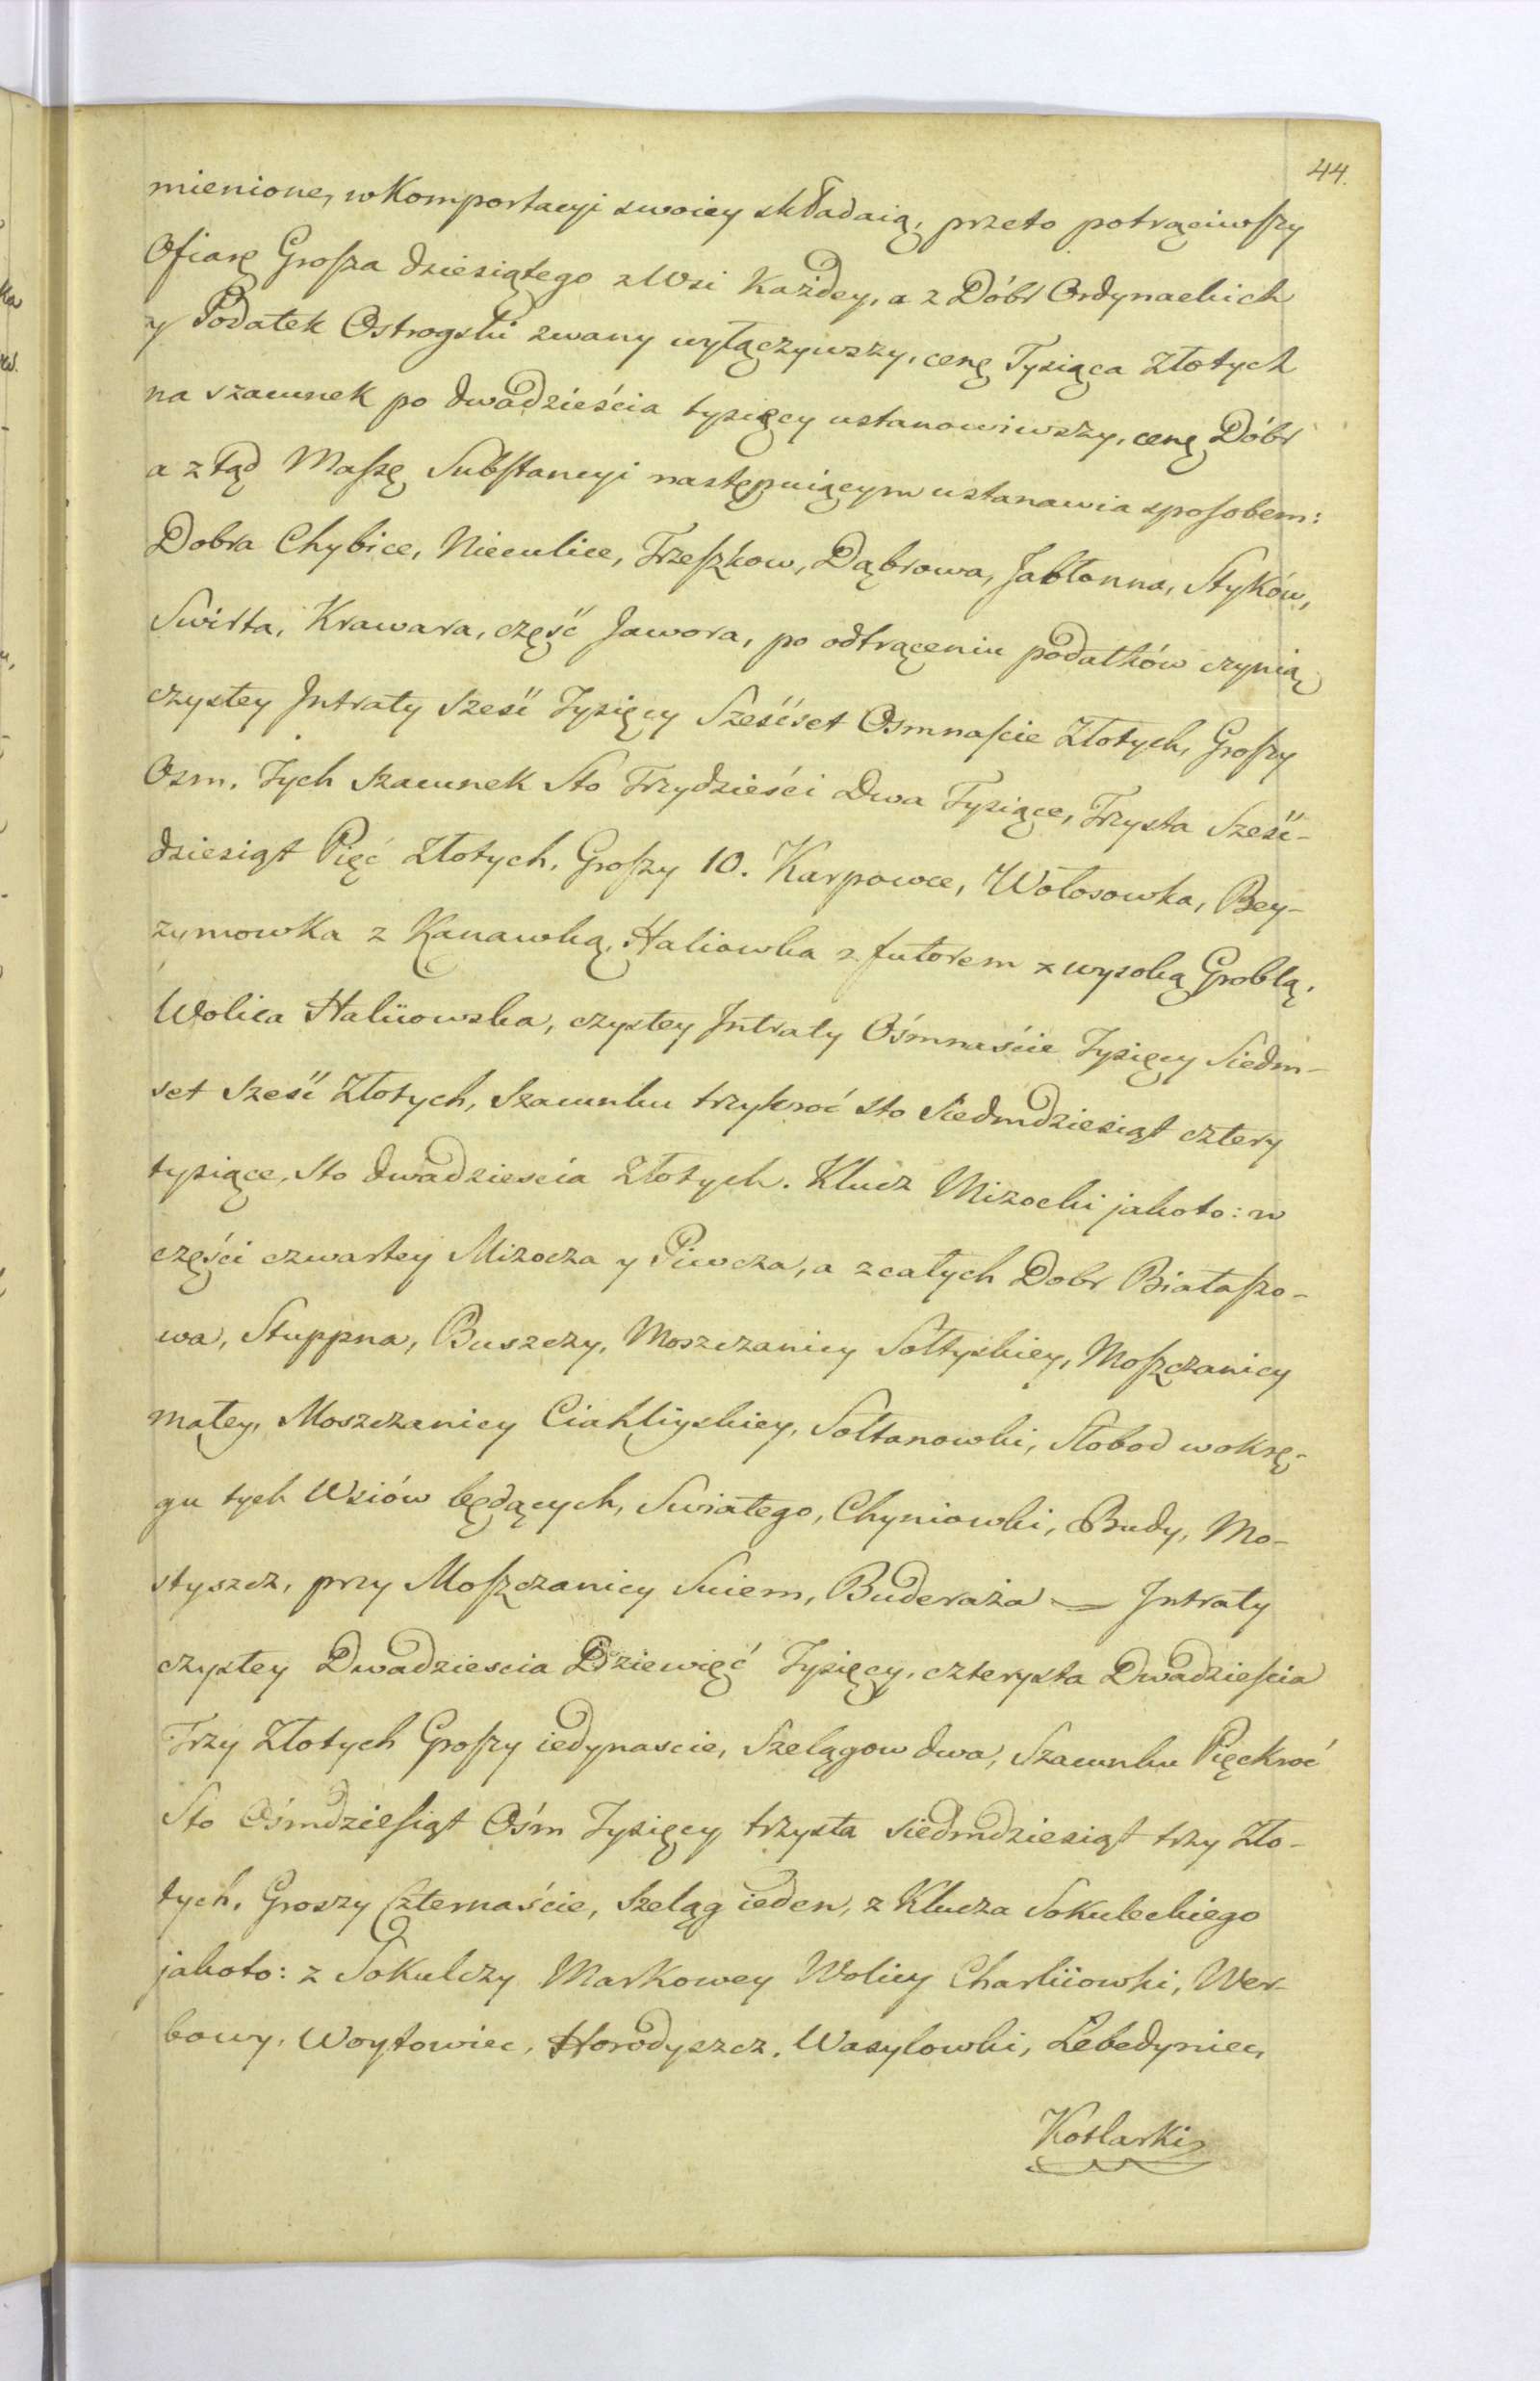 44.
mienione, w Komportacyi swoiey składaią, przeto potrąciwszy
Ofiarę Grosza dziesiątego z Wsi Każdey, a z Dóbr Ordynackich
y Podatek Ostrogski zwany wyłączywszy, cenę Tysiąca Złotych
na szacunek po dwadzieścia tysięcy ustanowiwszy, cenę Dóbr
a z tąd Massę Substancyi następuiącym ustanawia sposobem:
Dobra Chybice, Nieculice, Trzeszkow, Dąbrowa, Jabłonna, Styków,
Swirta, Krawara, część Jawora, po odtrąceniu podatków czynią
czystey Jntraty sześć Tysięcy Sześćset Osmnaście Złotych, Groszy
Osm. Tych szacunek Sto Trzydzieści Dwa Tysiące, Trzysta Sześć-
dziesiąt Pięć Złotych, Groszy 10. Karpowce, Wołosowka, Bey-
zymowka z Kanawką, Haliowka z futorem z wysoką Groblą,
Wolica Haliiowska, czystey Jntraty Ośmnaście Tysięcy Siedm-
set sześć Złotych, szacunku trzykroć sto Siedmdziesiąt cztery
tysiące, sto dwadziescia Złotych. Klucz Mizocki jakoto: w
części czwartey Mizocza y Piwcza, a z całych Dobr Białaszo-
wa, Stuppna, Buszczy, Moszczanicy Sołtyskiey, Moszczanicy
małey, Moszczanicy Ciahliyskiey, Sołtanowki, Słobod w okrę-
gu tych Wsiów będących, Swiatego, Chyniowki, Budy, Mo-
styszcz, przy Moszczanicy Sciem, Buderaża — Jntraty
czystey Dwadziescia Dziewięć Tysięcy, czterysta Dwadzieścia
Trzy Złotych Groszy iedynascie, Szelągow dwa, Szacunku Pięckroć
Sto Ośmdziesiąt Ośm Tysięcy trzysta siedmdziesiąt trzy Zło-
tych, Groszy Czternaście, Szeląg ieden, z Klucza Sokuleckiego
jakoto: z Sokulczy Markowey Wolicy Charliiowki, Wer-
bowy, Woytowiec, Horodyszcz, Wasylowki, Lebedyniec,
Kotlarki